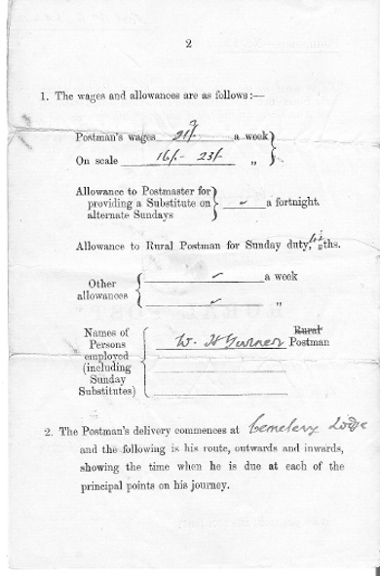 2
1. The wages and allowances are as follows:—
Postman's wages 21/- a week
On scale 16/- 23/- „
Allowance to Postmaster for
providing a Substitute on
alternate Sundays
a fortnight.
Allowance to Rural Postman for Sunday duty, ths.
Other
allowances
a week
„
Names of
Persons
employed
(including
Sunday
Substitutes)
Rural
W. H Turner Postman
2. The Postman's delivery commences at Cemetery Lodge
and the following is his route, outwards and inwards,
showing the time when he is due at each of the
principal points on his journey.